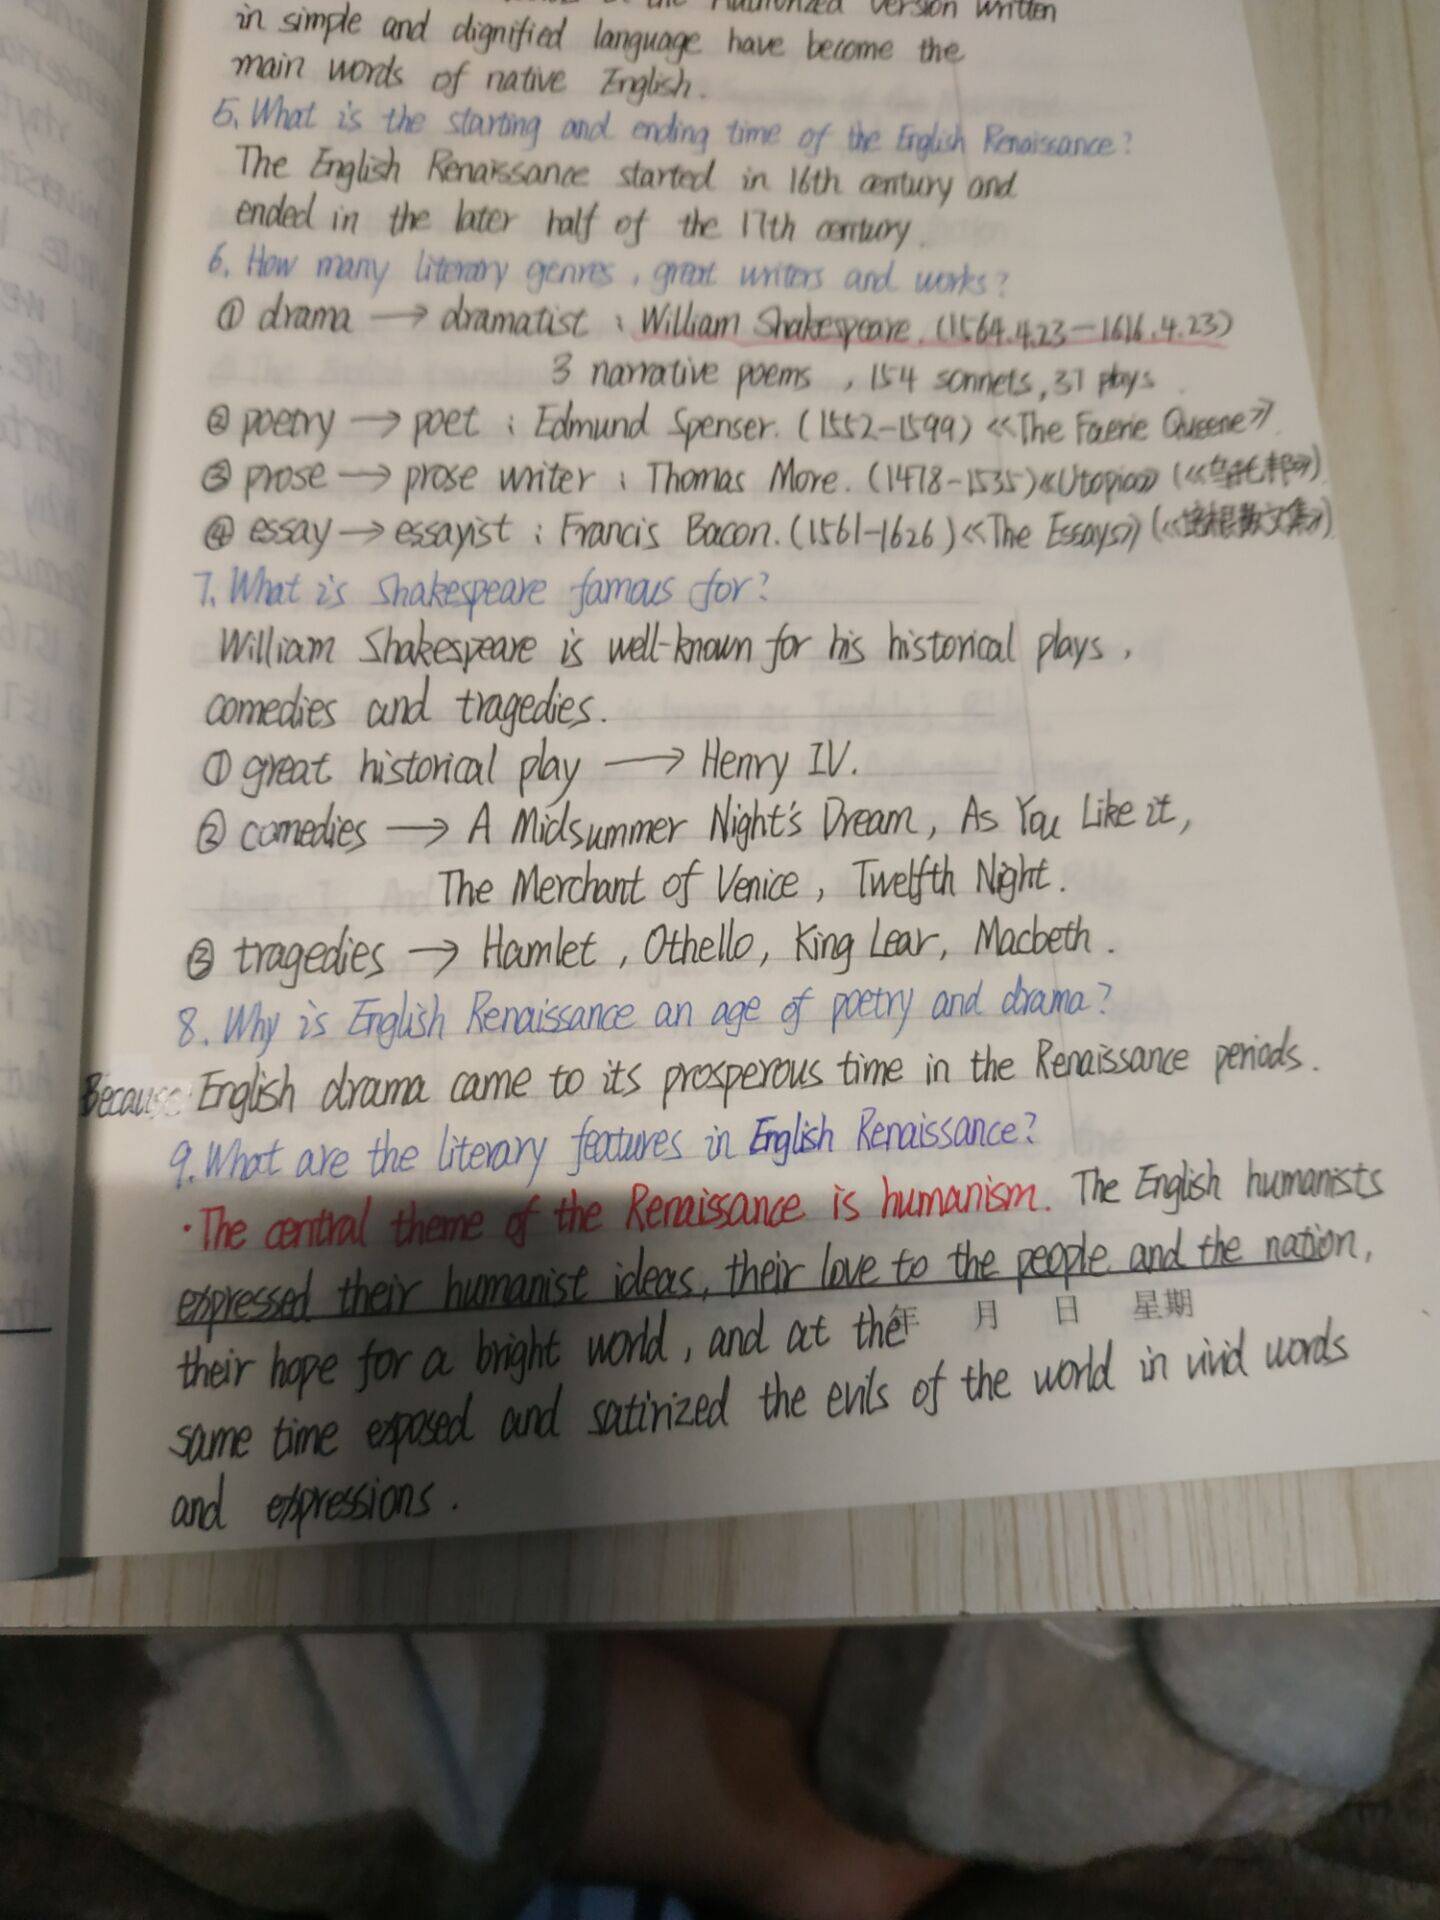 the Authorized Version written
in simple and dignified language have become the
main words of native English.
5. What is the starting and ending time of the English Renaissance?
The English Renaissance started in 16th century and
ended in the later half of the 17th century.
6. How many literary genres, great writers and works?
① drama → dramatist: William Shakespeare. (1564.4.23-1616.4.23)
3 narrative poems, 154 sonnets, 37 plays.
② poetry → poet: Edmund Spenser. (1552-1599) 《The Faerie Queene》.
③ prose → prose writer: Thomas More. (1478-1535) 《Utopia》 (《乌托邦》).
④ essay → essayist: Francis Bacon. (1561-1626) 《The Essays》 (《培根散文集》).
7. What is Shakespeare famous for?
William Shakespeare is well-known for his historical plays,
comedies and tragedies.
① great historical play → Henry IV.
② comedies → A Midsummer Night's Dream, As You Like it,
The Merchant of Venice, Twelfth Night.
③ tragedies → Hamlet, Othello, King Lear, Macbeth.
8. Why is English Renaissance an age of poetry and drama?
Because English drama came to its prosperous time in the Renaissance periods.
9. What are the literary features in English Renaissance?
·The central theme of the Renaissance is humanism. The English humanists
expressed their humanist ideas, their love to the people and the nation,
their hope for a bright world, and at the
年 月 日 星期
same time exposed and satirized the evils of the world in vivid words
and expressions.